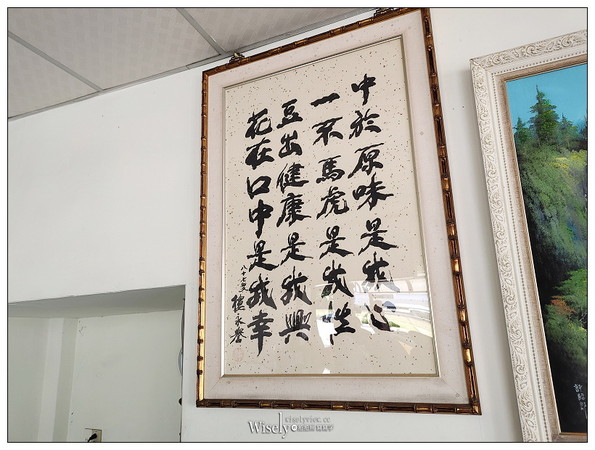 中於原味是我心
一不馬虎是我性
豆出健康是我興
花在口中是我幸
八十七叟
Wisely
wiselyview.cc